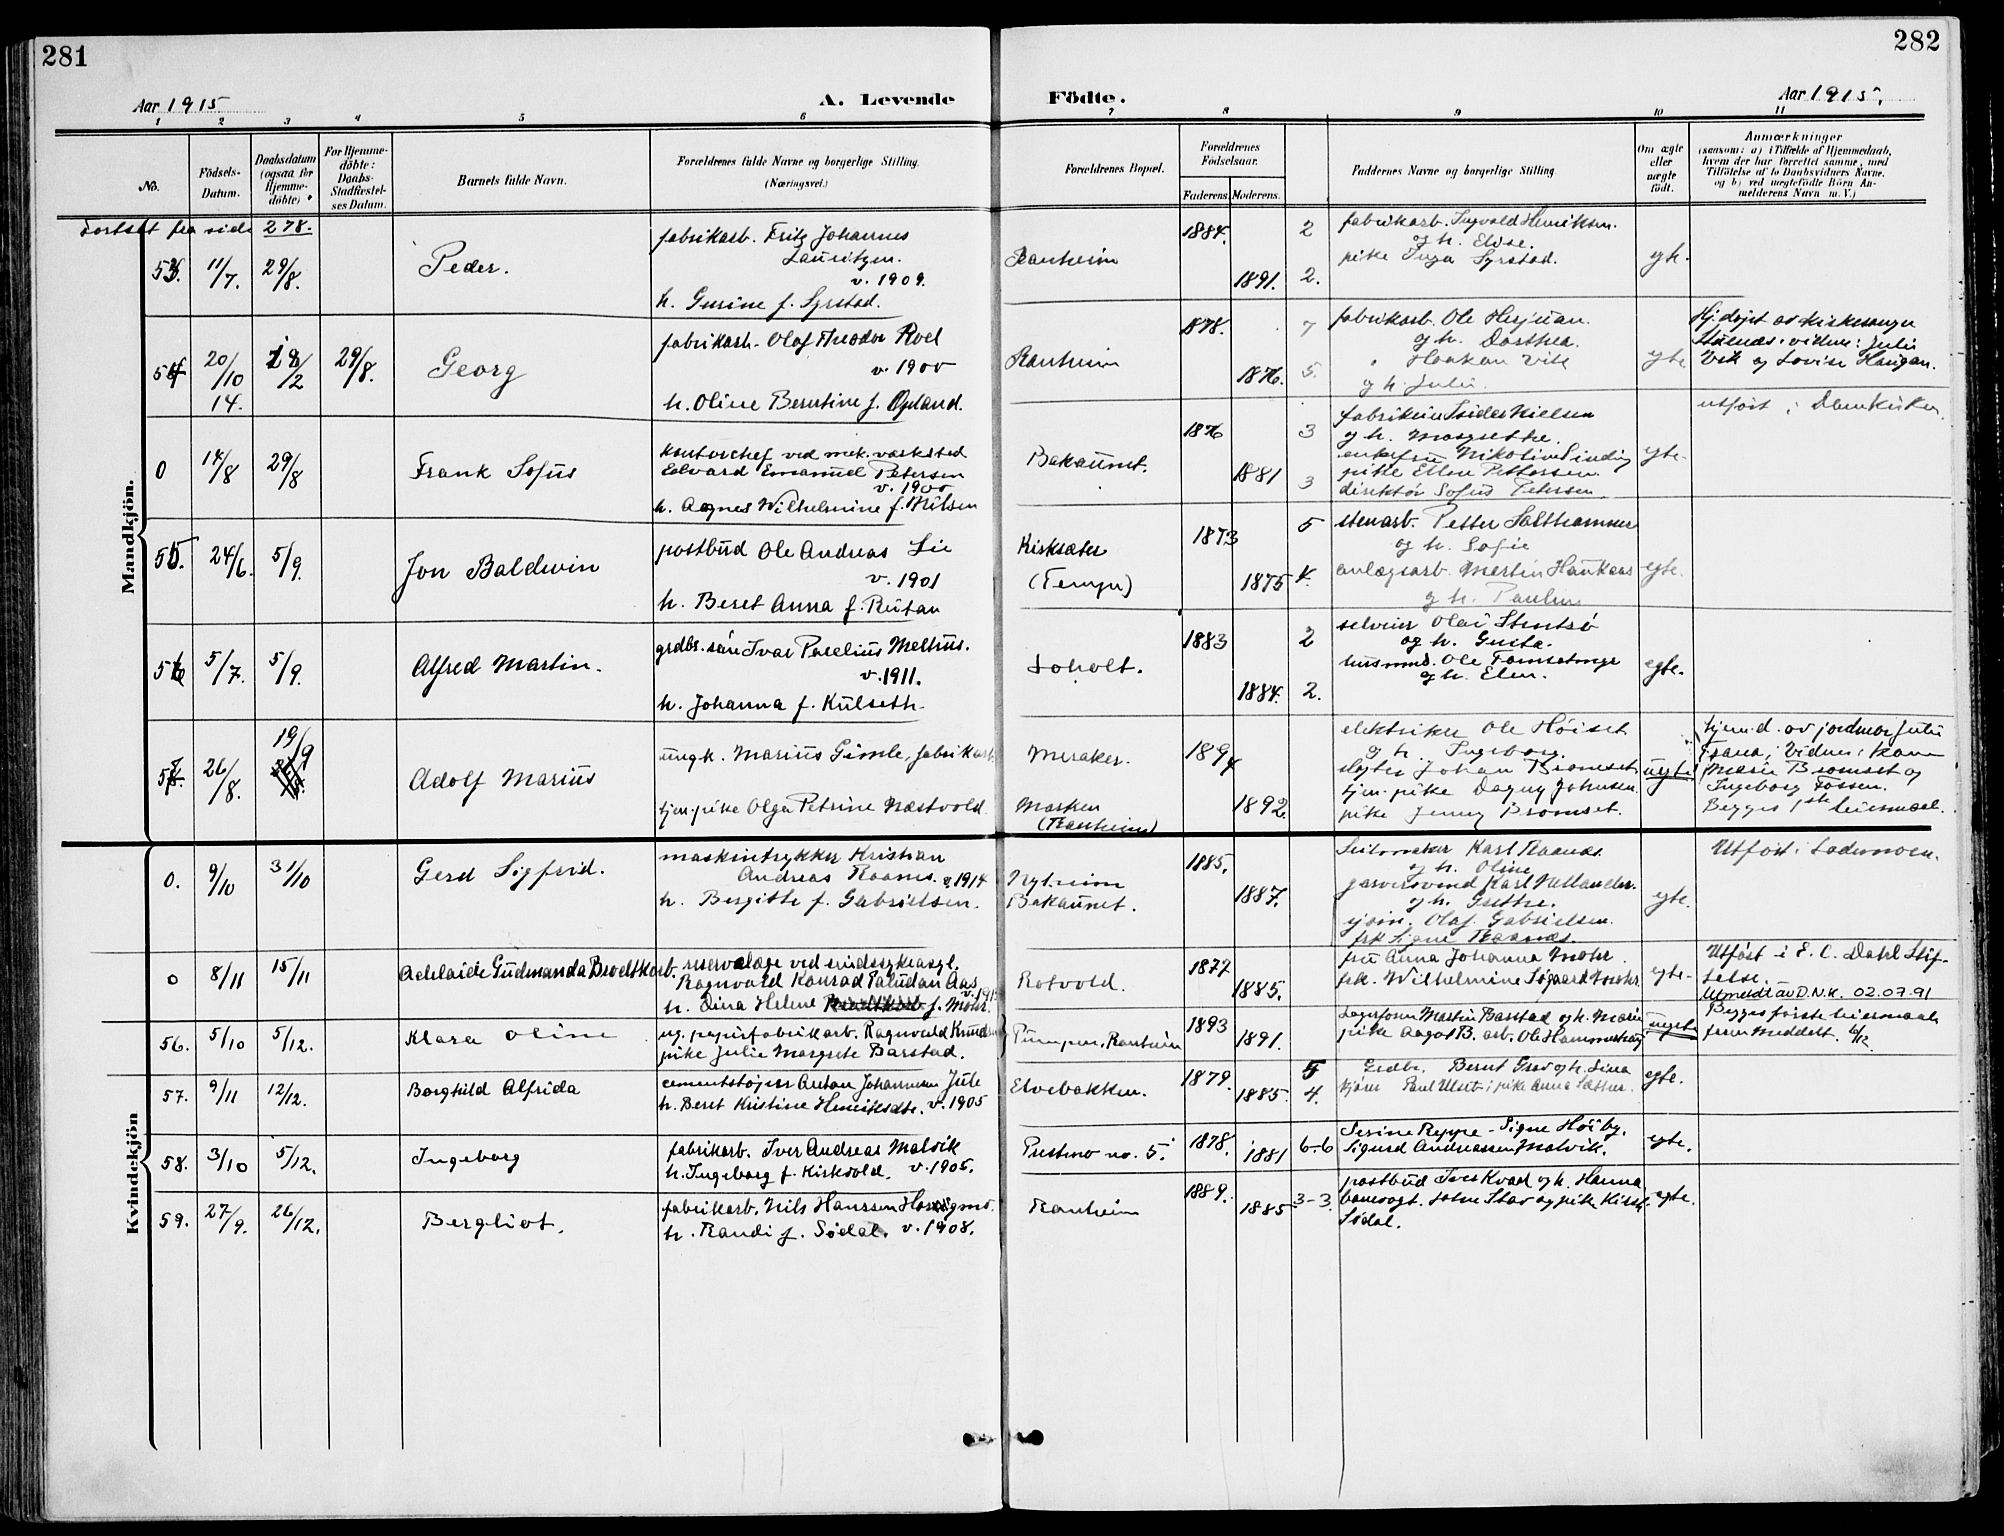 281
282
Aar 1915
A. Levende
Födte.
Aar 1915.
1 2 3 4 5 6 7 8 9 10 11
No.
Födsels-
Datum.
Daabsdatum
(ogsaa for
Hjemme-
döbte)
For Hjemme-
döbte:
Daabs-
Stadfæstel-
ses Datum.
Barnets fulde Navn.
Forældrenes fulde Navne og borgerlige Stilling.
(Næringsvei.)
Forældrenes Bopæl.
Forældrenes
Födselsaar.
Faderens.
Moderens.
Faddernes Navne og borgerlige Stilling
Om ægte
eller
uægte
födt.
Anmærkninger
(saasom: a) i Tilfælde af Hjemmedaab,
hvem der har forrettet samme, med
Tilföielse af to Daabsvidners Navne.
og b) ved uægtefödte Börn An-
melderens Navn m. V.)
Mandkjön.
Fortsat fra side 278.
53. 11/7 29/8. Peder.
fabrikarb. Fritz Johannes
Lauritzen
v. 1909.
h. Gurine f. Syrstad.
Ranheim
1884.
1891.
2
2.
fabrikarb. Ingvald Henriksen
og h. Elise.
pike Inga Syrstad.
egte.
54 20/10 14. 18/2 29/8. Georg
fabrikarb. Olaf Theodor Roel
v. 1900
h. Oline Berntine f. Opland.
Ranheim
1878.
1876.
7
5.
fabrikarb. Ole Hesjuan.
og h. Dorthea.
" Haakon Vik
og h. Juli.
egte
Hj.døpt av kirkesanger
vidner: Julie
Vik og Lovise Haugan.
0 14/8 29/8 Frank Sofus
kontorchef ved mek. værksted
Edvard Emanuel Petersen
v. 1900
h. Agnes Wilhelmine f. Nilsen
Bakaunet.
1876
1881
3
3
Nielsen
og h. Margrethe.
enkefru Nikoline Sinding
pike Ellen Pettersen.
direktör Sofus Petersen.
egte.
utført i Domkirken.
55. 24/6. 5/9. Jon Baldwin
postbud Ole Andreas Lie
v. 1901
h. Beret Anna f. Rutan
Kirksæter
(Tempe)
1873
1875
5
4.
stenarb. Petter Salthammer
og h. Sofie
anlægsarb. Martin Haukaas
og h. Paulin
egte.
56 5/7. 5/9. Alfred Martin.
grdbr. søn Ivar Parelius Melhus.
v. 1911.
h. Johanna f. Kulseth.
Loholt.
1883
1884.
2
2.
selveier Olai Stentsø
og h. Gusta.
husmnd. Ole
og h. Elen.
egte.
57. 26/8. 19/9 Adolf Marius
ungk. Marius Gimle, fabrikarb.
tjen. pike Olga Petrine Næstvold.
Meraker.
Marken
(Ranheim)
1894
1892.
elektriker Ole Høiset
og h. Ingeborg.
sløyfer Johan Bromset
tjen. pike Dagny Johnsen
pike Jenny Bromset.
uegte
hjemd. av jordmor Juli
Frana; Vidner: kone
Marie Bromset og
Ingeborg Fossen.
Begges 1ste leiermaal.
Kvindekjön
0. 9/10 31/10 Gerd Sigfrid.
maskintrykker Kristian
Andreas Raanes. v. 1914
h. Bergitte f. Gabrielsen.
Nyheim
Bakaunet.
1885.
1887.
Seilmaker Karl Raanes.
og h. Oline
garversvend Karl Netlander.
og h. Grethe.
Olaf Gabrielsen.
frk Signe Raanes.
egte.
Utført i Lademoen.
0 8/11 15/11 Adelaide Gudmunda Brodtkorb.
reservelæge ved sindsykeasyl.
Ragnvald Konrad Paludan Aas
h. Dina Helene f. Mohr.
Rotvold.
1877
1885.
fru Anna Johanna Mohr.
frk. Wilhelmine Søgaard Mohr.
egte
Utført i E. C. Dahl Stif-
telse.
Utmeldt av D.N.K. 02.07.91
56. 5/10 5/12. Klara Oline
ug. papirfabrikarb. Ragnvald Knudsen
pike Julie Margrete Barstad.
Pumpen, Ranheim
1893
1891.
Martin Barstad og h. Marie
pike Aagot B. arb. Ole Hammerhaug
uegte
Begges første leiermaal
frem Meddelt 6/12
57. 9/11 12/12. Borghild Alfrida
cementstøper Anton Johannesen Jule
h. Beret Kristine Henriksdtr. v. 1905
Elvebakken.
1879.
1885.
5
4.
Grdbr. Bernt Grav og h. Lina
kjøre Paul Ulset; pike Anna Sæther.
egte.
58. 3/10 5/12. Ingeborg
fabrikarb. Iver Andreas Malvik
h. Ingeborg f. Kirkvold. v. 1905.
Prestmo no. 5.
1878.
1881
6-6
Serine Reppe - Signe Høiby.
Sigurd Andreassen Malvik.
egte.
59. 27/9. 26/12. Bergliot.
fabrikarb. Nils Hanssen
h. Randi f. Sødal. v. 1908.
Ranheim
1889.
1885
3-3.
postbud Iver Kvad og h. Hanna
banevogt. John Stav og pike Kirsti
Sødal.
egte.